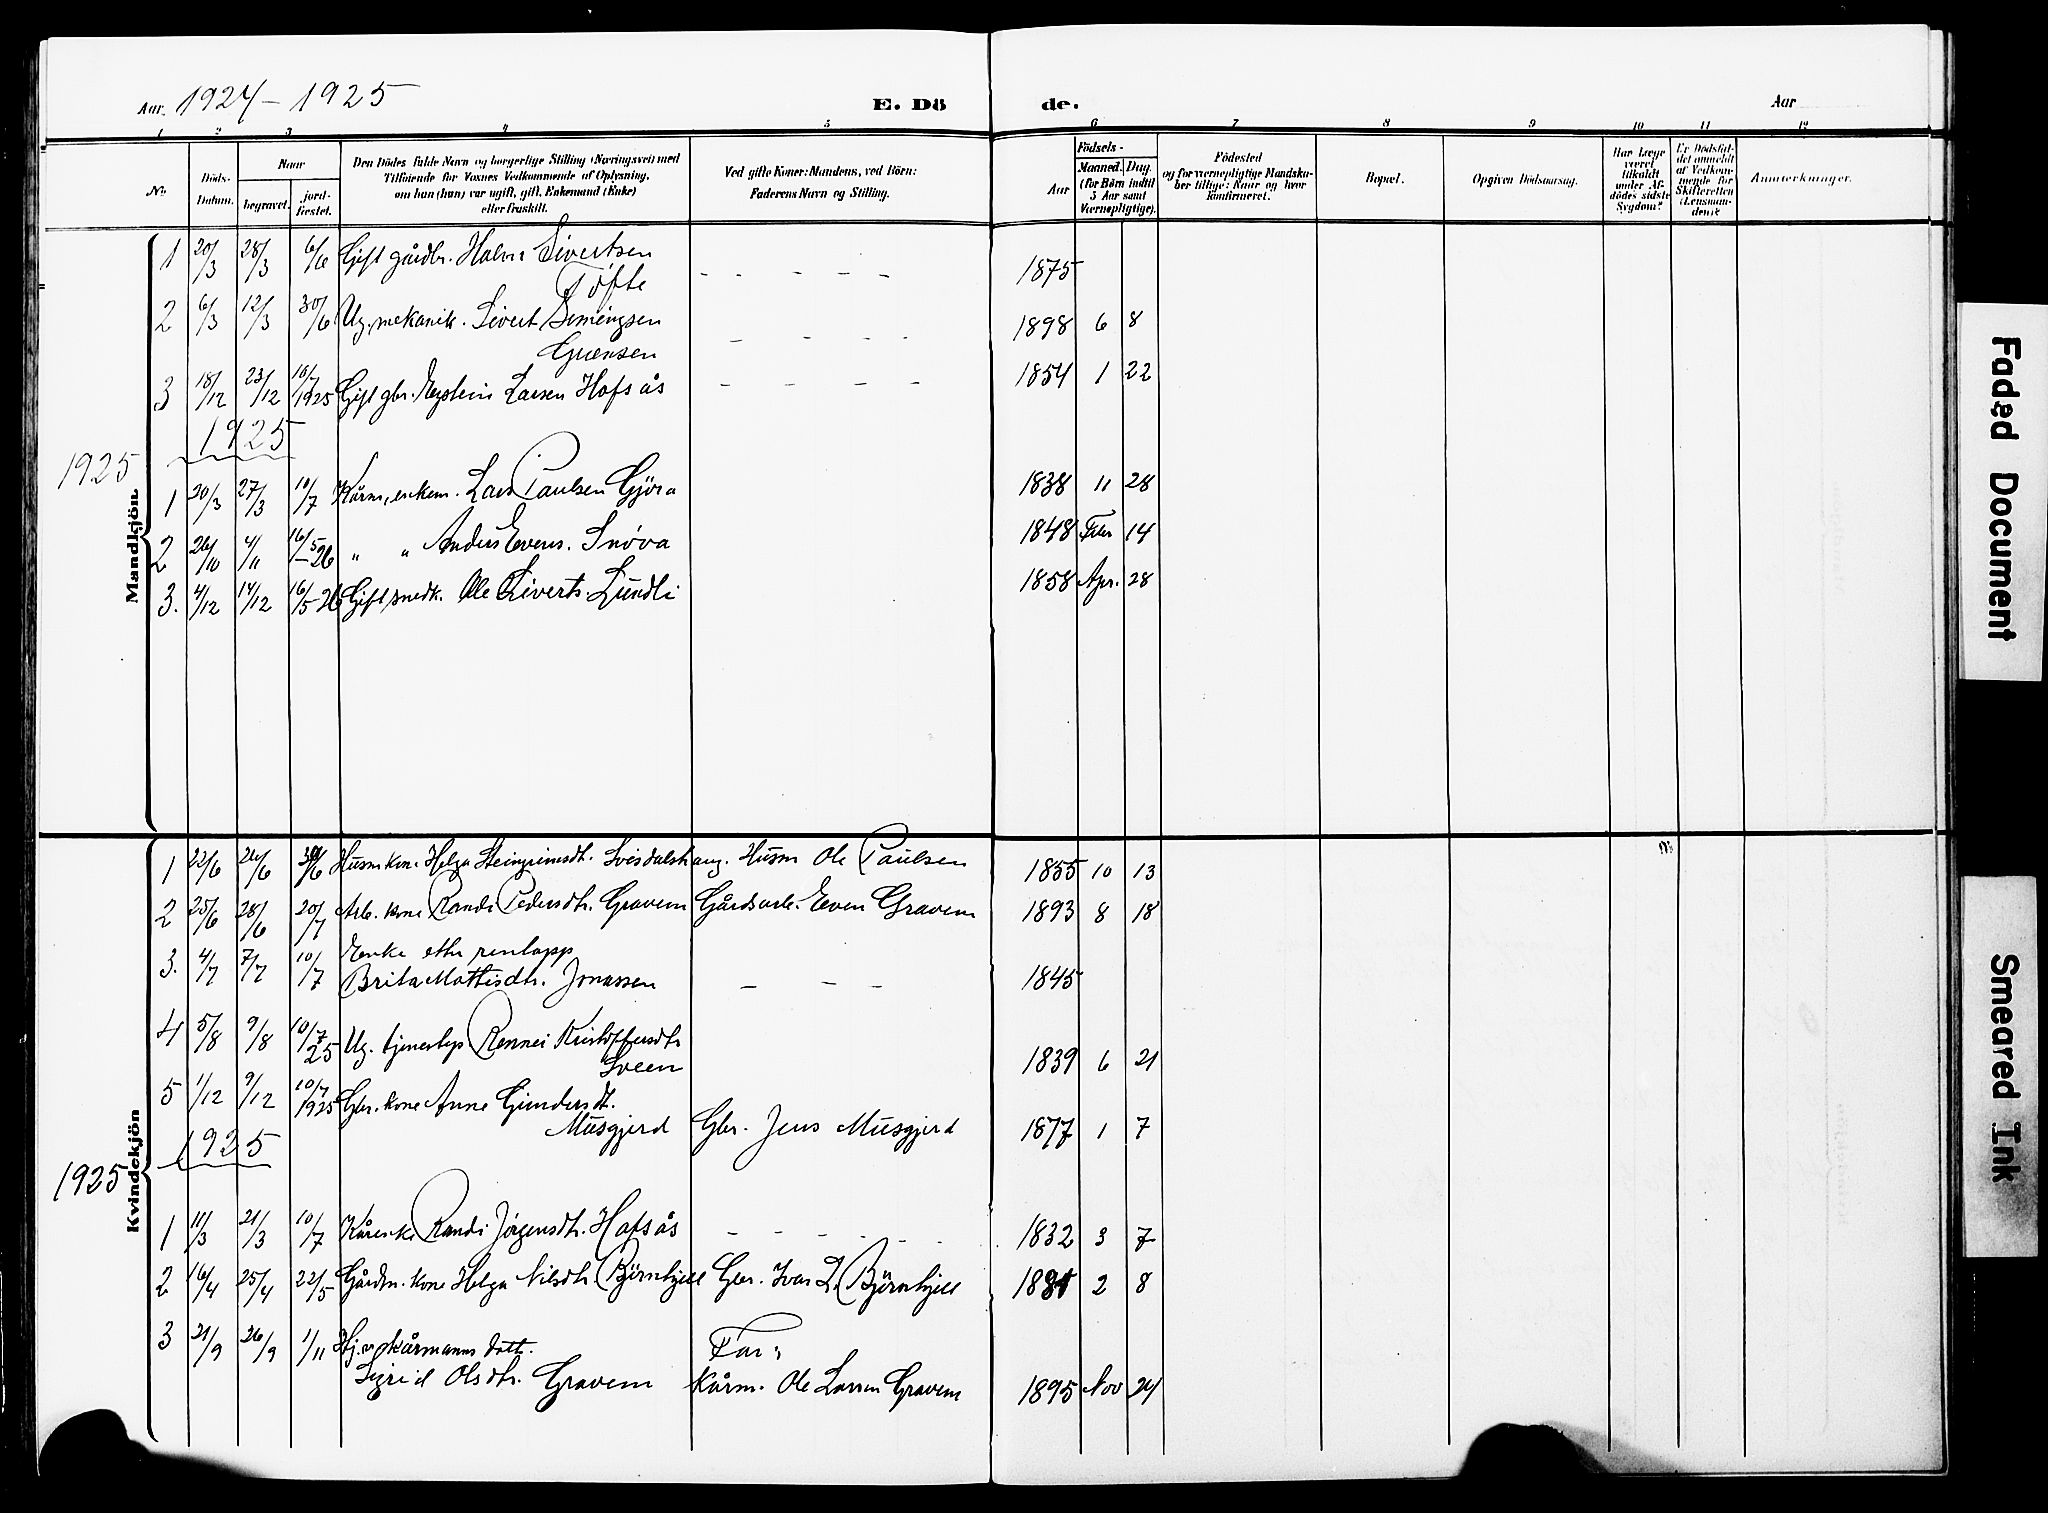 Aar. 1924 – 1925 E. Dö de. Aar
1 2 3 4 5 6 7 8 9 10 11 12
No. Döds-Datum. Naar begravet. jord-fæstet. Den Dödes fulde Navn og borgerlige Stilling (Næringsvei) med Tilföiende for Voxnes Vedkommende af Oplysning, om han (hun) var ugift, gift, Enkemand (Enke) eller fraskilt. Ved gifte Koner: Mandens, ved Börn: Faderens Navn og Stilling. Aar Födsels- Maaned. Dag. (for Börn indtil 5 Aar samt Værnepligtige). Födested og for værnepligtige Mandska-ber tillige: Naar og hvor konfirmeret. Bopæl. Opgiven Dödsaarsag. Har Læge været tilkaldt under Af-dödes sidste Sygdom? Er Dödsfal-det anmeldt af Vedkom-mende for Skifteretten (Lensman-den)? Anmerkninger.
Mandkjön
1 20/3 28/3 6/6 Gift gårdbr. Halvor Sivertsen - - - - - 1875
Tøfte
2 6/3 12/3 30/6 Ug. mekanik. Sivert Simengsen - - - - 1898 6 8
Grensen
3 18/12 23/12 10/7 1925 Gift gbr. Eystein Larsen Hofsås - - - - 1854 1 22
1925
1925
1 20/3 27/3 10/7 Kårm, enkem. Lars Paulsen Gjöra 1838 11 28
2 26/10 4/11 16/5 – 26 " " Anders Evens. Snøva 1848 Febr 14
3. 4/12 14/12 16/5 26 Gift snedk. Ole Siverts. Lundli 1858 Apr. 28
Kvindekjön
1 22/6 26/6 30/6 Husm kone Helga Steingrimsdt. Svisdalshaug. Husm Ole Paulsen 1855 10 13
2 25/6 28/6 20/7 Arb. kone Randi Pedersdtr. Gravem Gårdsarb. Even Gravem 1893 8 18
3. 4/7 7/7 10/7 Enke ettr renlapp
Brita Mattisdtr. Jonassen - - - 1845
4 5/8 9/8 10/7 25 Ug. tjenestep Rennei Kristoffersdtr
Sveen 1839 6 21
5 1/12 9/12 10/7 1925 Gbr. kone Anne Gundersdt.
Musgjerd Gbr. Jens Musgjerd 1877 1 7
1925
1925
1 11/3 21/3 10/7 Kårenke Randi Jørgensdtr. Hofsås - - - - - - 1832 3 7
2 16/4 25/4 22/5 Gårdm. kone Helga Nilsdtr. Björnhjell Gbr. Ivar L. Björnhjell 1881 2 8
3 21/9 26/9 1/11 Hj.v. kårmanns datt. Far:
Sigrid Olsdtr. Gravem Kårm. Ole Larsen Gravem 1895 Nov 24
Faded Document
Smeared Ink